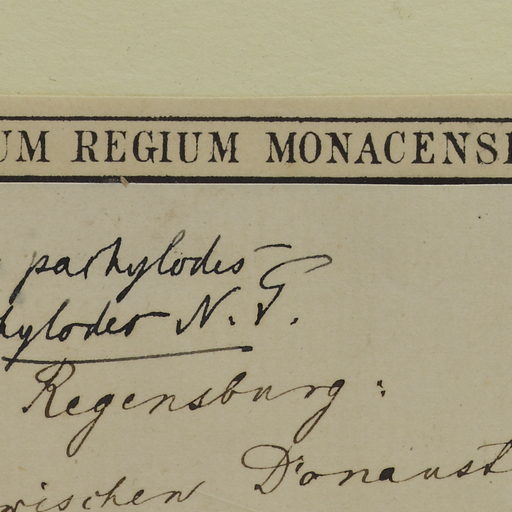 UM REGIUM MONACENSI
pachylodes
hylodes N. P.
Regensburg:
wischen Donaust